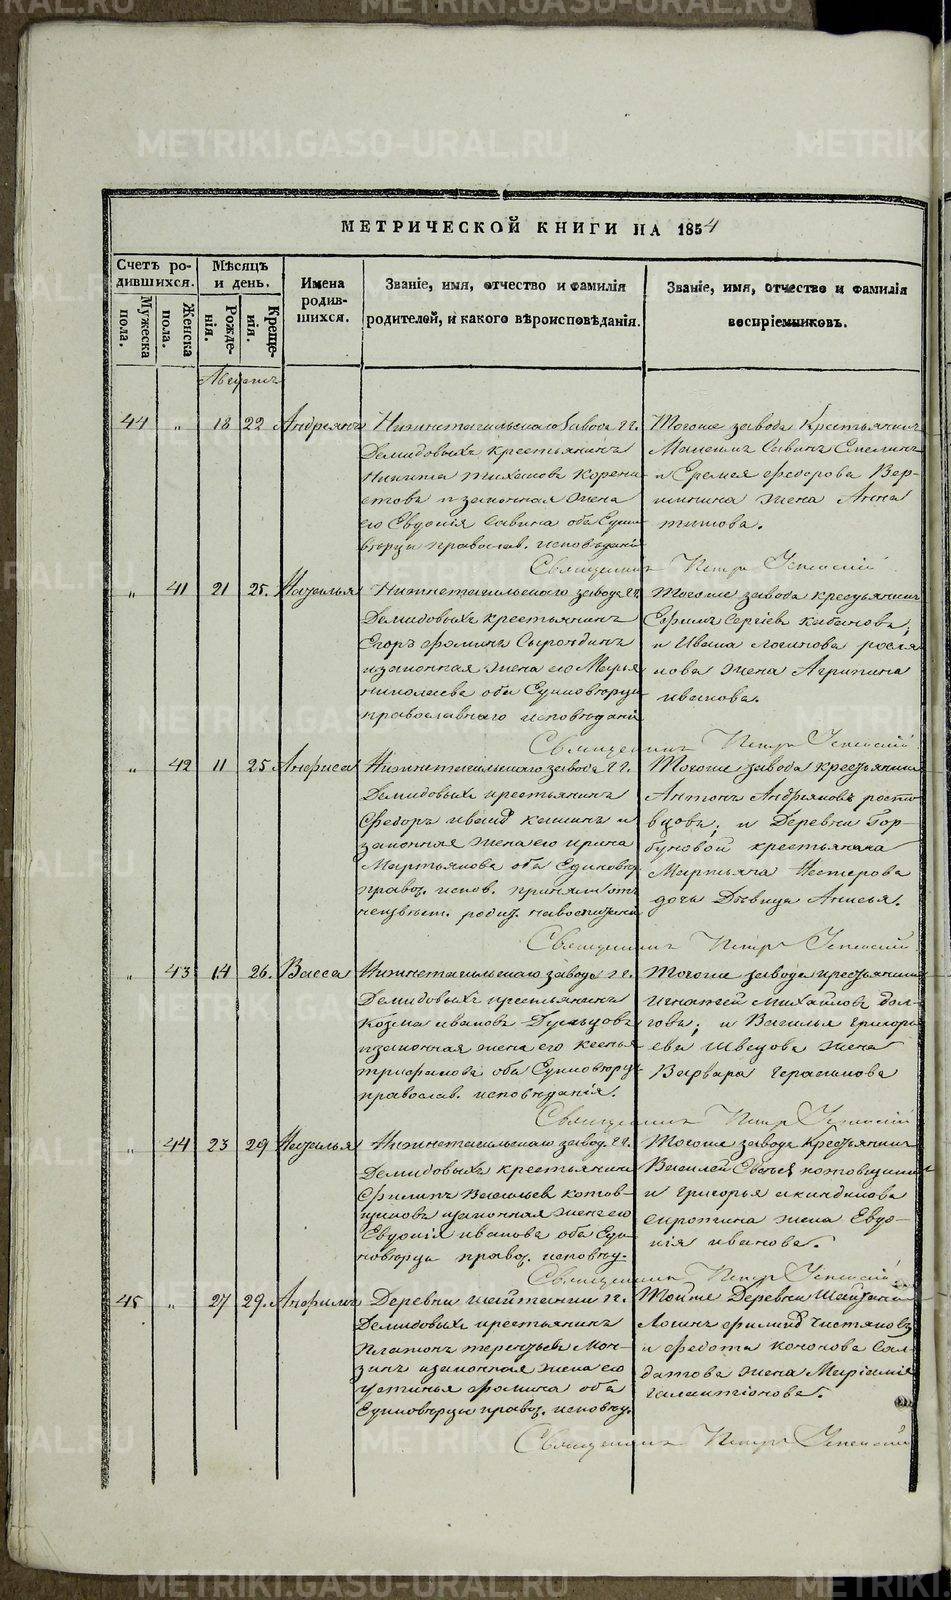 METRIKI.GASO-URAL.RU
МЕТРИЧЕСКОЙ КНИГИ НА 1854
Счетъ родившихся.
Мужеска пола.
Женска пола.
Мѣсяцъ и день.
Рожденія.
Крещенія.
Имена родившихся.
Званіе, имя, отчество и фамилія родителей, и какого вѣроисповѣданія.
Званіе, имя, отчество и фамилія воспріемниковъ.
Августъ
44 „ 18 22 Андреянъ
Нижнетагильскаго завода гг.
Демидовыхъ крестьянинъ
Никита
и законная жена
его Евдокія Савина оба Едино
вѣрцы православ. исповѣданія
Тогоже завода Крестьянинъ
Савинъ
и Еремея Федорова Вер-
шинина жена Анна
Титова.
Священникъ Петръ Успенскій
„ 41 21 25. Наталья
Нижнетагильскаго завода гг.
Демидовыхъ крестьянинъ
Егоръ Фоминъ
и законная жена его Марья
Николаева оба Единовѣрцы
православнаго исповѣданія
Тогоже завода крестьянинъ
Ефимъ Сергѣевъ Кабановъ;
и Ивана Логинова
жена Агрипина
Иванова.
Священникъ Петръ Успенскій
„ 42 11 25 Анфиса
Нижнетагильскаго завода гг.
Демидовыхъ крестьянинъ
Федоръ Ивановъ и
законная жена его Ирина
Мартьянова оба Единовѣр.
правос. испов. приняли отъ
неизвѣст. родит. на воспитаніе
Тогоже завода крестьянинъ
Антонъ Андрьяновъ Росто
вцовъ; и Деревни Гор-
буновой крестьянина
Мартьяна Нестерова
дочь Дѣвица Анисья.
Священникъ Петръ Успенскій
„ 43 14 26. Васса
Нижнетагильскаго завода гг.
Демидовыхъ крестьянинъ
Козма Ивановъ
и законная жена его Ксенья
Трифанова оба Единовѣрцы
православ. исповѣданія.
Тогоже завода крестьянинъ
Игнатей Михайловъ Дол-
говъ; и Василья Григорь
ева Швецова жена
Варвара Герасимова
Священникъ Петръ Успенскій
„ 44 23 29 Наталья
Нижнетагильскаго завод. гг.
Демидовыхъ крестьянинъ
Филипъ Васильевъ Котов-
щиковъ и законная жена его
Евдокія Иванова оба Еди-
новѣрцы правос. исповѣд.
Тогоже завода Крестьянинъ
Василей Котовщиковъ
и Григорья Акиндинова
Сиротина жена Евдо-
кія Иванова.
Священникъ Петръ Успенскій
45 „ 27 29. Анфимъ
Деревни Шайтанки гг.
Демидовыхъ крестьянинъ
Платонъ Терентьевъ
и законная жена его
Устинья Фомина оба
Единовѣрцы правос. исповѣд.
Тойже Деревни Шайтанки
Логинъ Чистяковъ
и Федота Кононова Сол-
датова жена
Галактіонова.
Священникъ Петръ Успенскій